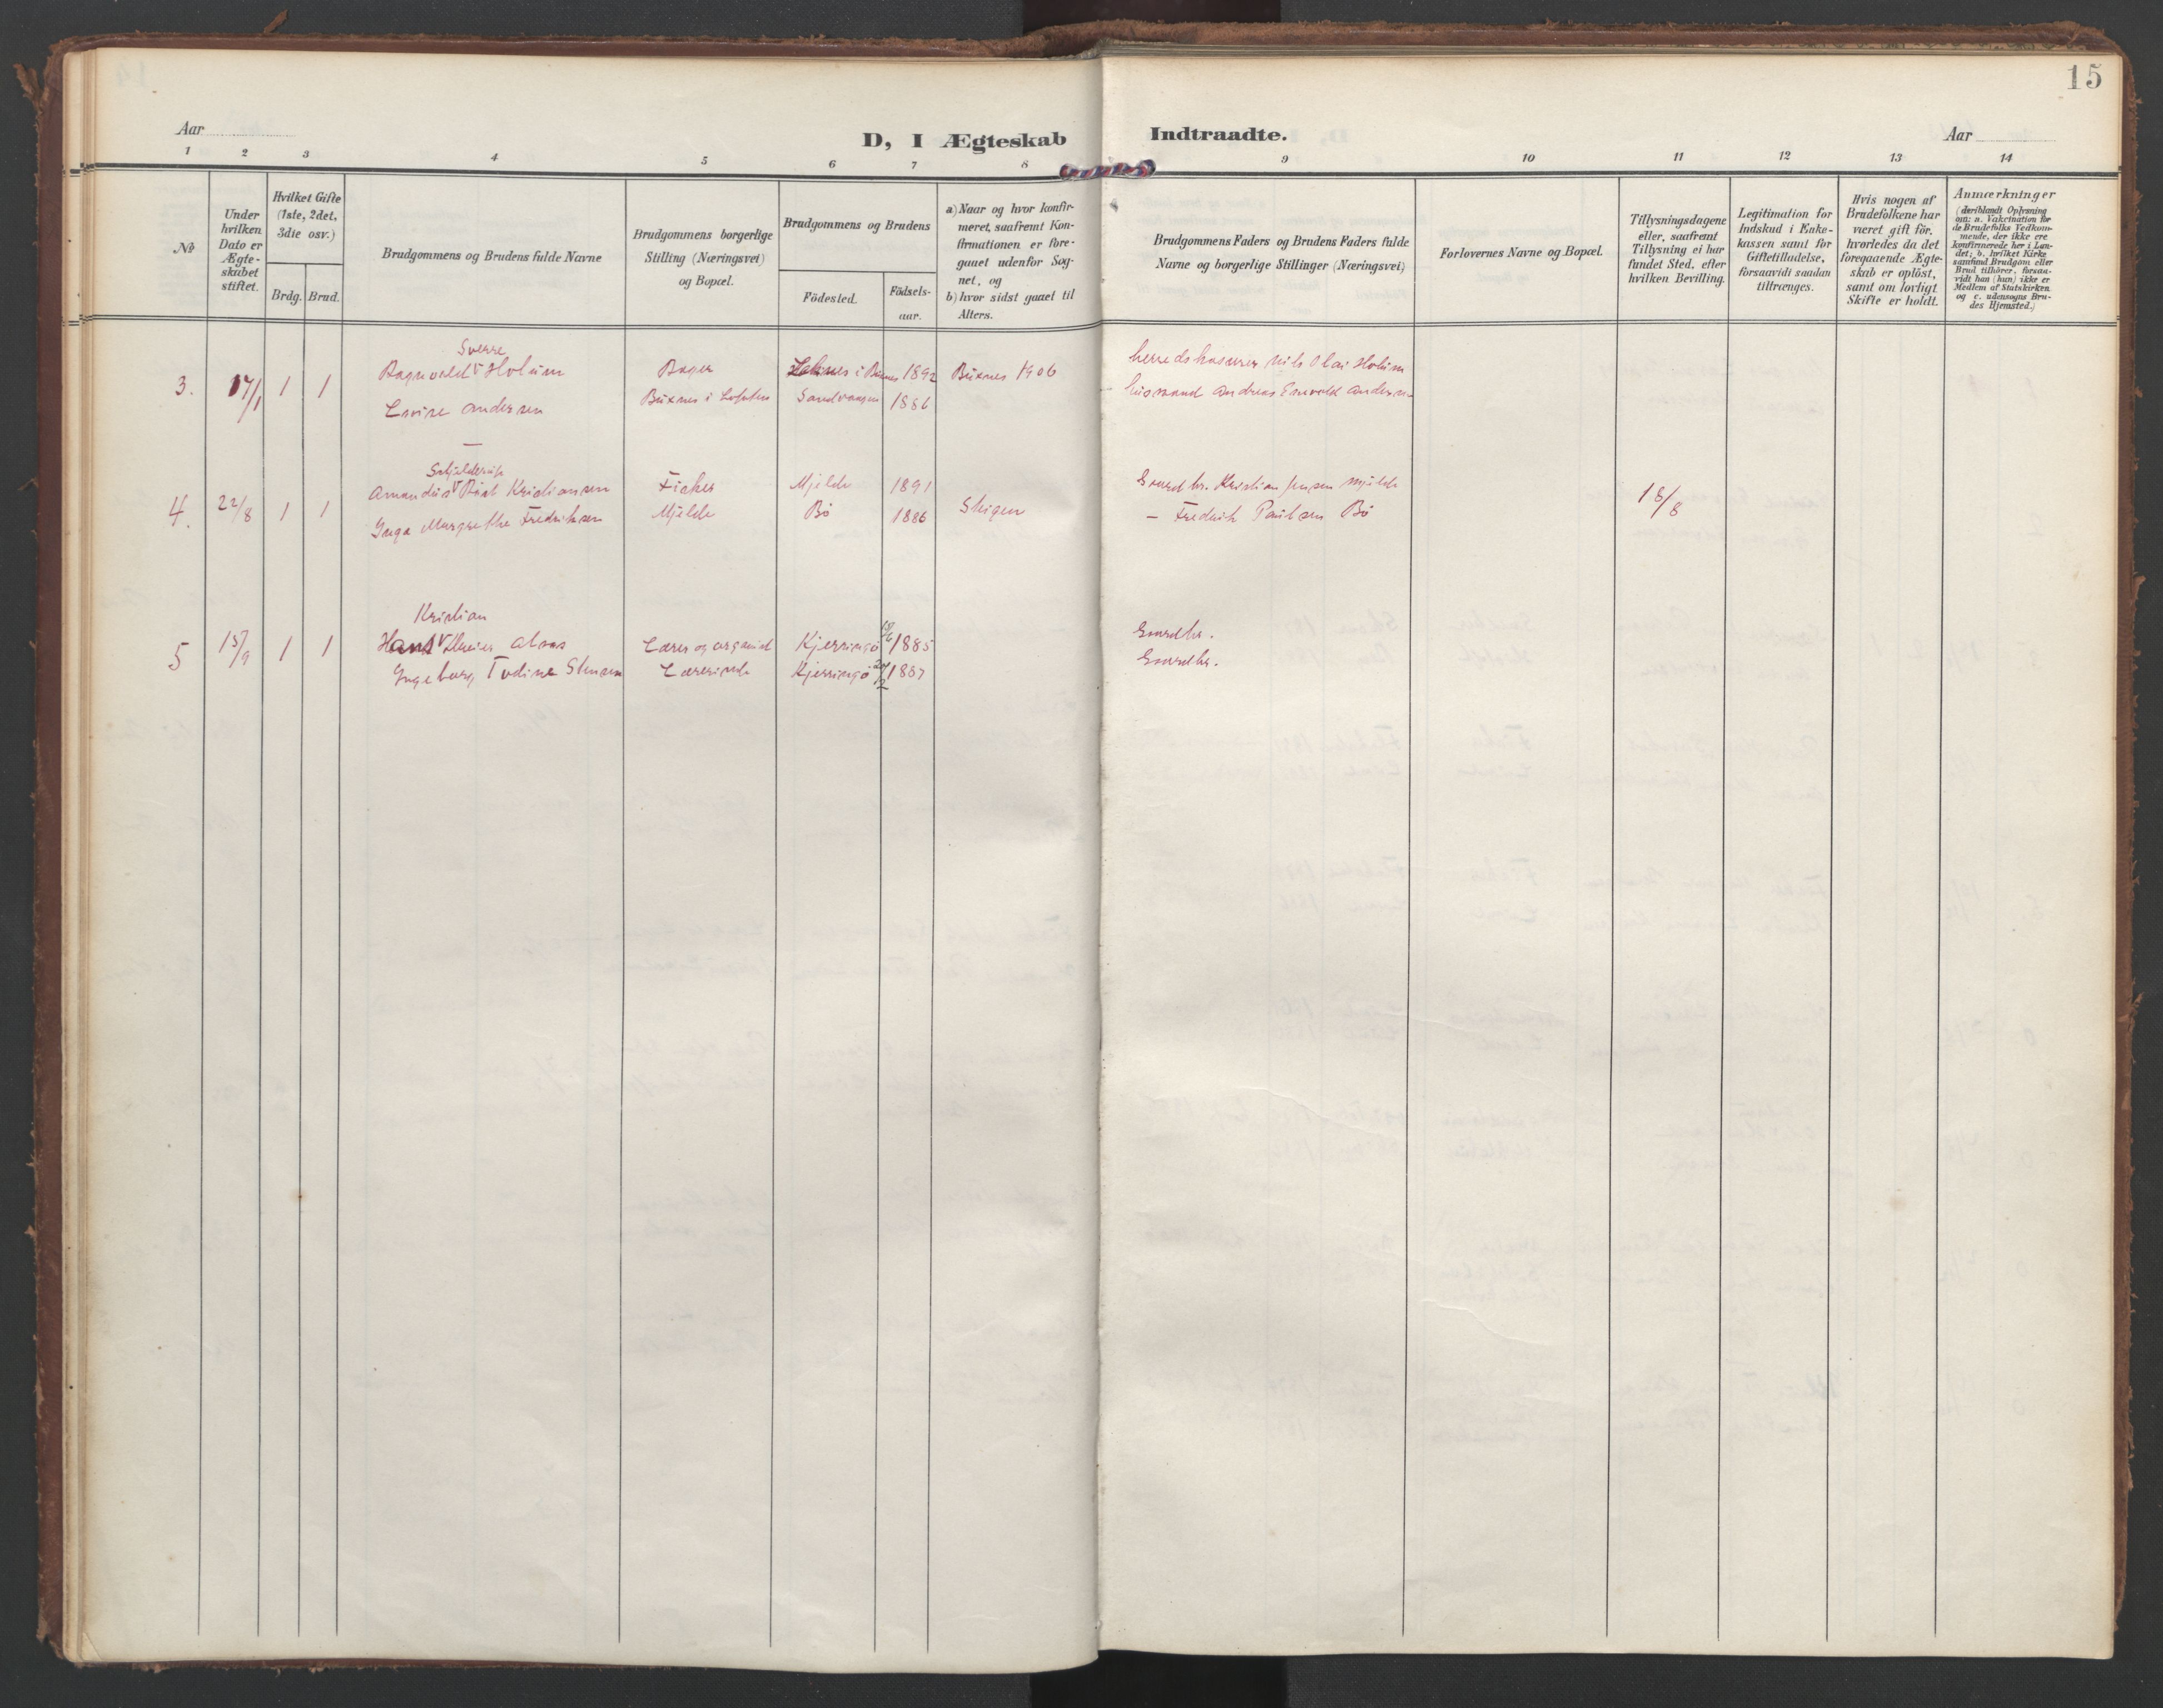 15
Aar
D, I Ægteskab Indtraadte.
Aar
1 2 3 4 5 6 7 8 9 10 11 12 13 14
No
Under hvilken Dato er Ægte-skabet stiftet.
Hvilket Gifte (1ste, 2det, 3die osv.)
Brdg. Brud.
Brudgommens og Brudens fulde Navne
Brudgommens borgerlige Stilling (Næringsvei) og Bopæl.
Brudgommens og Brudens
Födested.
Födsels-aar.
a) Naar og hvor konfir-
meret, saafremt Kon-
firmationen er fore-
gaaet udenfor Sog-
net, og
b) hvor sidst gaaet til
Alters.
Brudgommens Faders og Brudens Faders fulde
Navne og borgerlige Stillinger (Næringsvei)
Forlovernes Navne og Bopæl.
Tillysningsdagene
eller, saafremt
Tillysning ei har
fundet Sted, efter
hvilken Bevilling.
Legitimation for
Indskud i Enke-
kassen samt for
Giftetilladelse,
forsaavidt saadan
tiltrænges.
Hvis nogen af
Brudefolkene har
været gift för,
hvorledes da det
foregaaende Ægte-
skab er oplöst,
samt om lovligt
Skifte er holdt.
Anmærkninger
(deriblandt Oplysning
om: a. Vakcination for
de Brudefolks Vedkom-
mende, der ikke ere
konfirmerede her i Lan-
det; b. hvilket Kirke
samfund Brudgom eller
Brud tilhörer, forsaa-
vidt han (hun) ikke er
Medlem af Statskirken
og c. udensogns Bru-
des Hjemsted.)
Sverre
3. 17/1 1 1 Ragnvald Holum Bager i 1892 Buxnes 1906 herredskasserer Nils Olai Holum
Lovise Andersen Buxnes i Lofoten 1886 Andreas Andersen
Schjelderup
4. 22/8 1 1 Amandus Kristiansen Fisker Mjelde 1891 Gaardbr. Kristian Jensen Mjelde 18/8
Inga Margrethe Fredriksen Mjelde Bö 1886 Steigen – Fredrik Paulsen Bö
Kristian
5 15/9 1 1 Hans Lærer og organist Kjerringö 1885 Gaardbr.
Ingeborg Stensen Lærerinde Kjerringö 1887 Gaardbr.